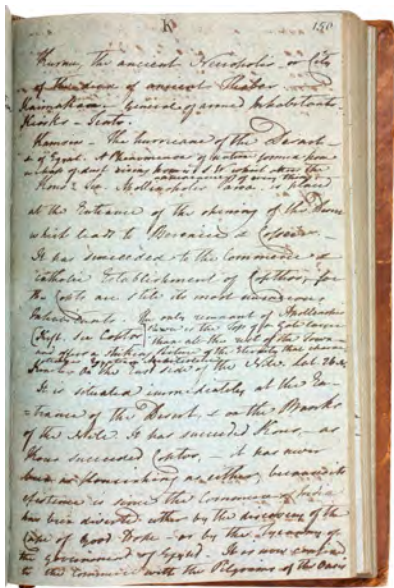 K
150
Kurnu, the ancient Necropolis or City
of the dead of ancient Thebes.
Kaimakam - General of armed Inhabitants.
Kiosks - Tents.
Kamsin - The hurricane of the Desart
of Egypt. A Phenomenon of nature formed from
of dust rising from
Kous
at the Entrance of the opening of the Desert
which leads to Berenice & Cosseir.
It has succeeded to the Commerce &
Catholic Establishment of Copthos, for
the Copts are still its most numerous
Inhabitants. The only remnant of
(Kift. See Coptos) shewn is the top of a Gate
than all the rest of the Town
and offers a picture of the Eternity that
Egyptian
Kene - On the East side of the Nile. Lat. 26.
It is situated immediately at the En-
=trance of the Desert, & on the Banks
of the Nile. It has succeeded Kous, - as
Kous succeeded Coptos, - it has never
been as flourishing as either, because its
existence is since the Commerce of India
has been diverted either by the discovery of the
Cape of Good Hope - or by the Tyranny of
the government of Egypt. It is now confined
to the Commerce with the Pilgrims of the Oasis